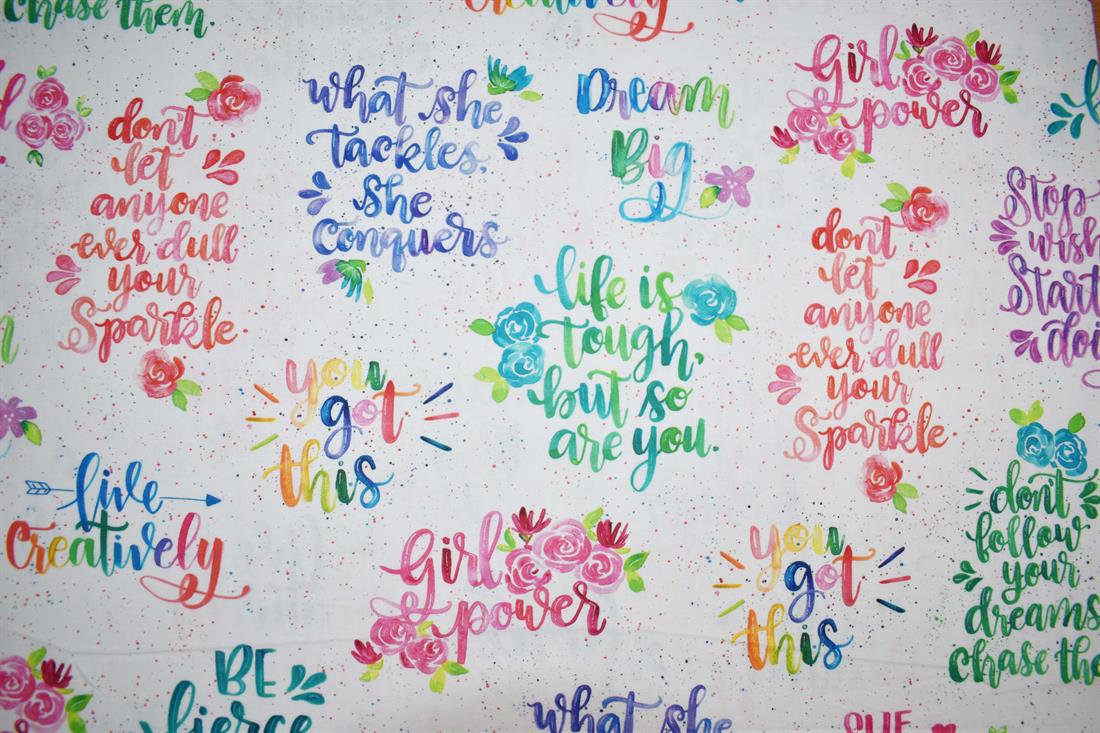 chase them.
creatively
don't
let
anyone
ever dull
your
Sparkle.
what she
tackles,
she
conquers
Dream
Big
Girl
power
life is
tough,
but so
are you.
don't
let
anyone
ever dull
your
Sparkle.
Stop
wish
Start
doi
you
got
this
live
Creatively
Girl
power
you
got
this
don't
follow
your
dreams
chase the
BE
fierce
what she
SHE